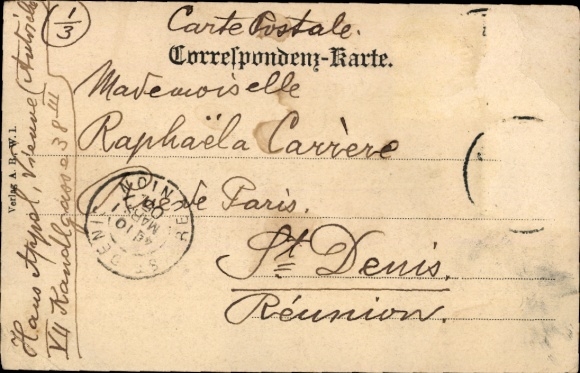 1/3
Carte Postale.
Correspondenz-Karte.
Mademoiselle
Raphaëla Carrère
Rue de Paris.
St Denis.
Réunion.
Hans Appel, Vienne
VII Kandlgasse 38 III
Verlag A. B. W. I.
ST DENIS
REUNION
MARS